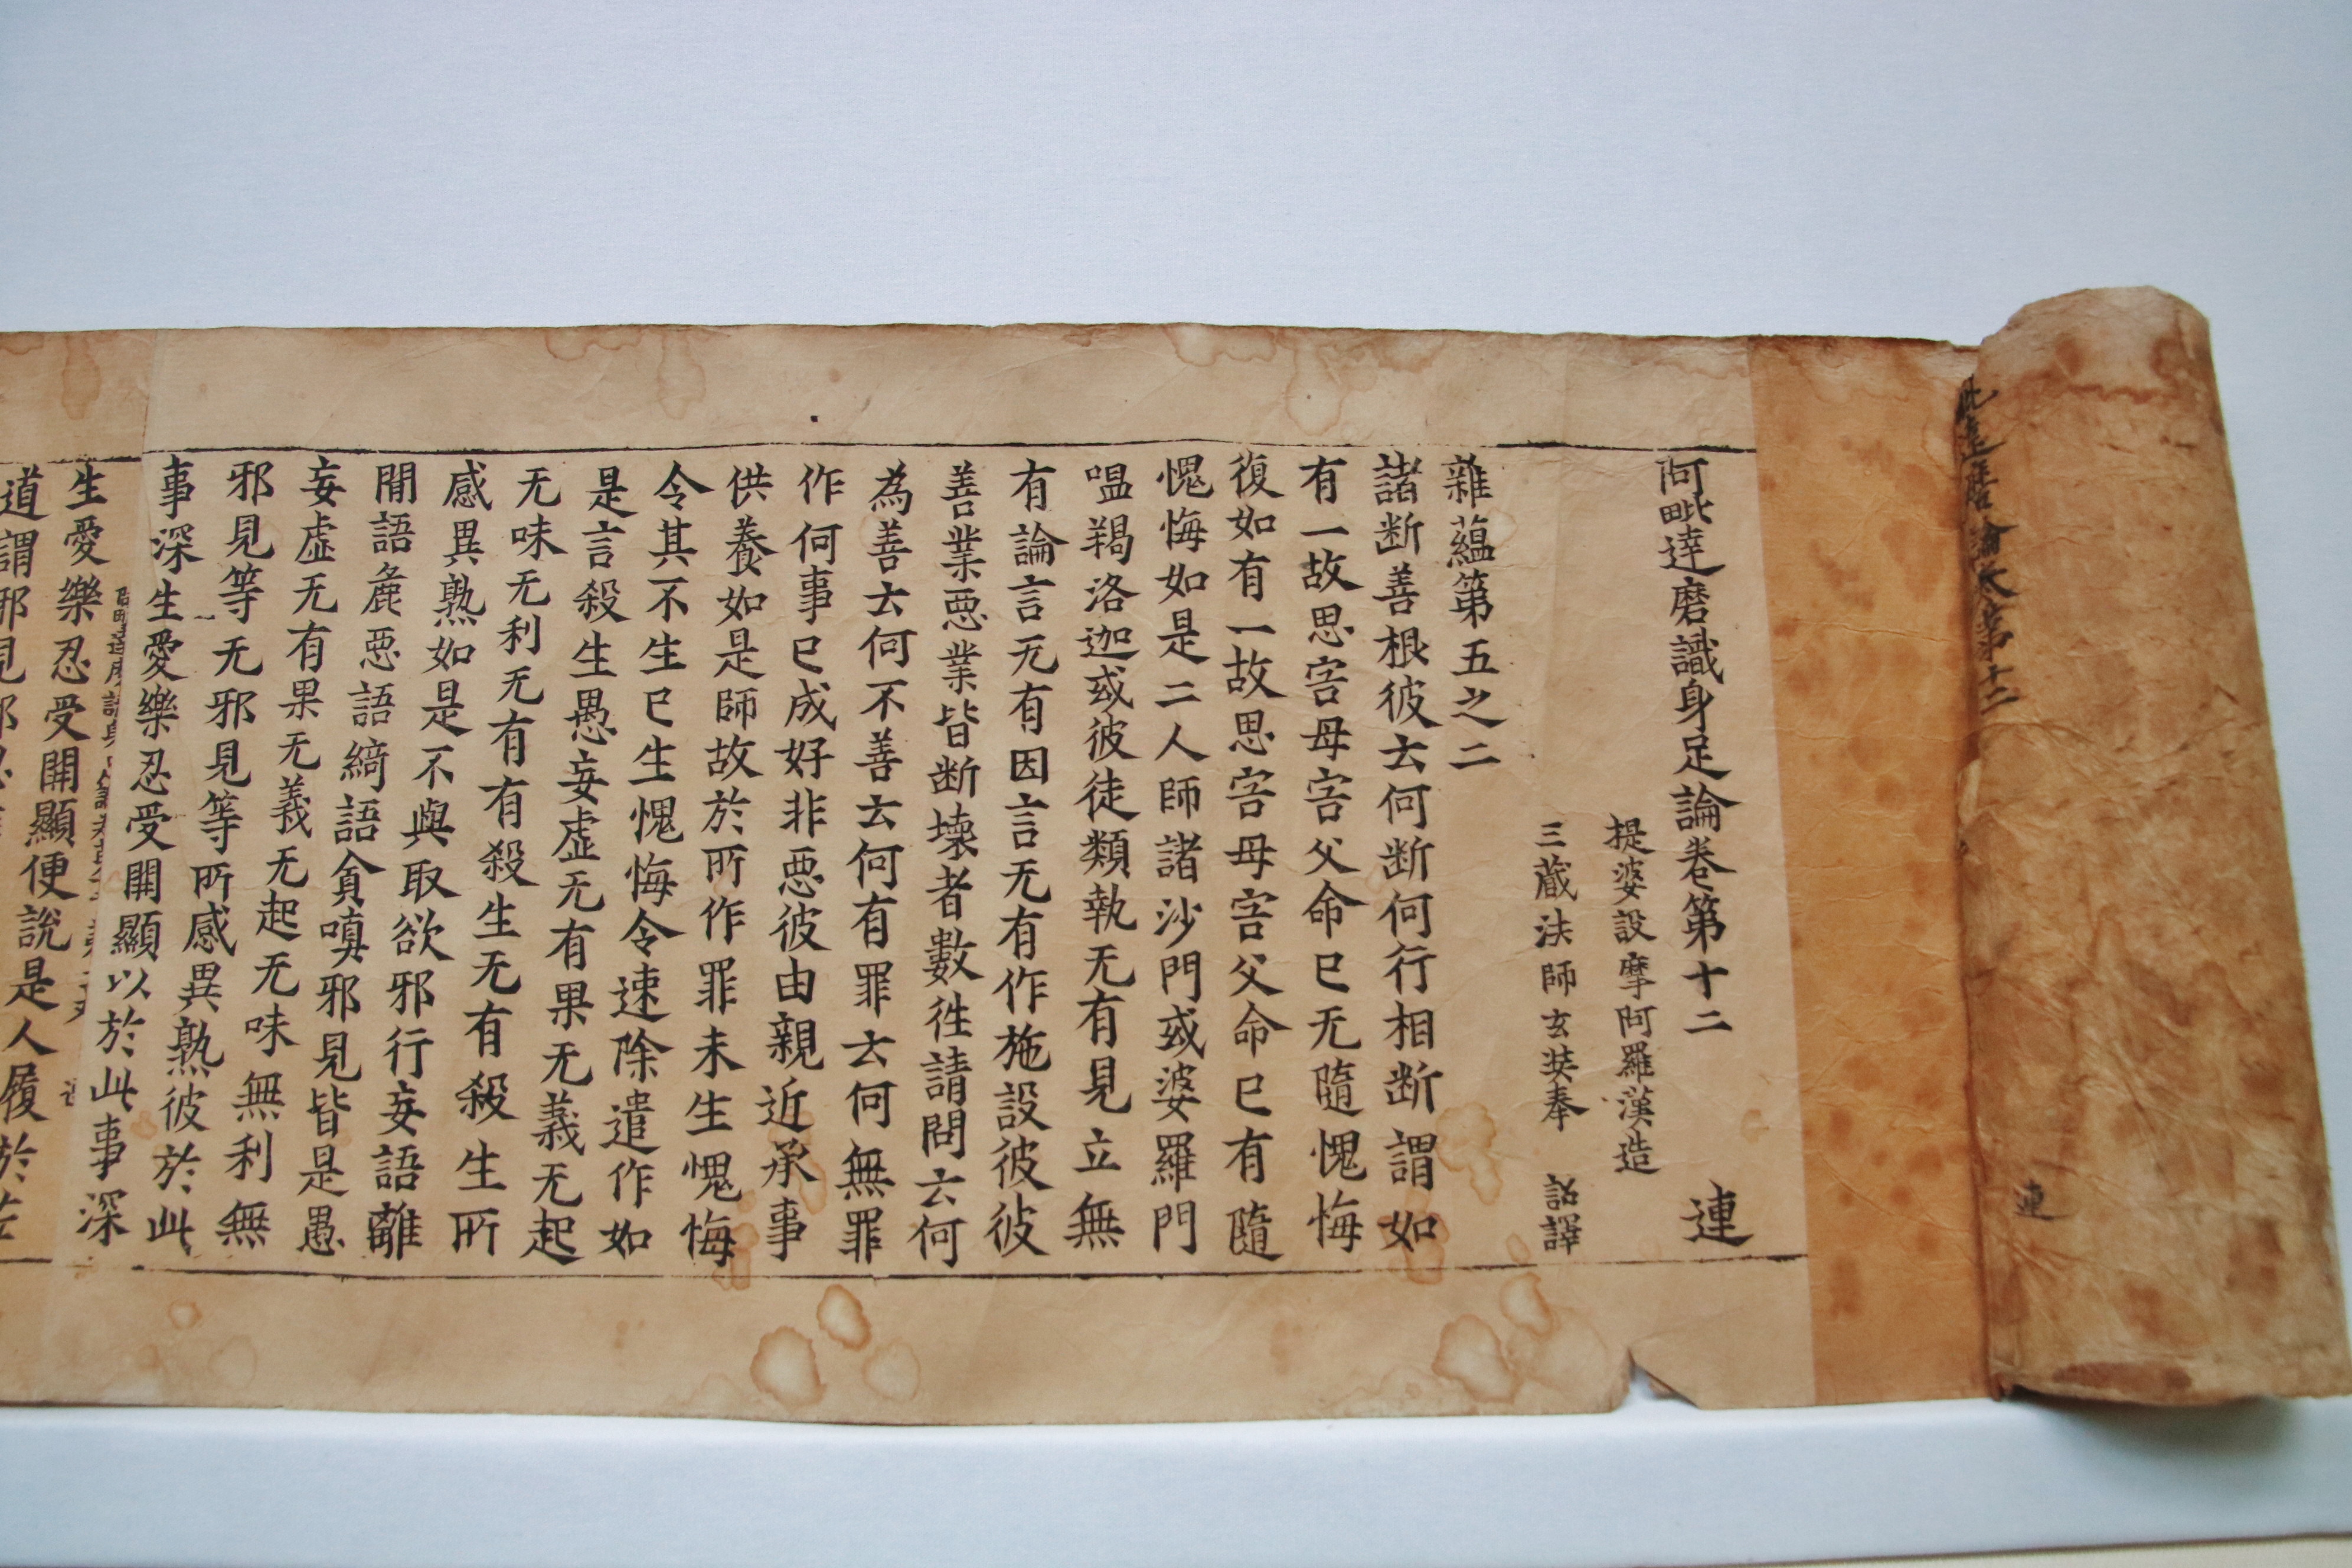 毗達磨論 第十二
連
阿毗達磨識身足論卷第十二 連
提婆設摩阿羅漢造
三藏法師玄奘奉 詔譯
雜蘊第五之二
諸断善根彼云何断何行相断謂如
有一故思害母害父命已无隨愧悔
復如有一故思害母害父命已有隨
愧悔如是二人師諸沙門或婆羅門
嗢羯洛迦或彼徒類執无有見立無
有論言无有因言无有作施設彼彼
善業惡業皆断壞者數往請問云何
為善云何不善云何有罪云何無罪
作何事已成好非惡彼由親近承事
供養如是師故於所作罪未生愧悔
令其不生已生愧悔令速除遣作如
是言殺生愚妄虛无有果无義无起
无味无利无有有殺生无有殺生所
感異熟如是不與取欲邪行妄語離
間語麁惡語綺語貪嗔邪見皆是愚
妄虛无有果无義无起无味無利無
邪見等无邪見等所感異熟彼於此
事深生愛樂忍受開顯以於此事深
生愛樂忍受開顯便說是人履於
道謂邪見